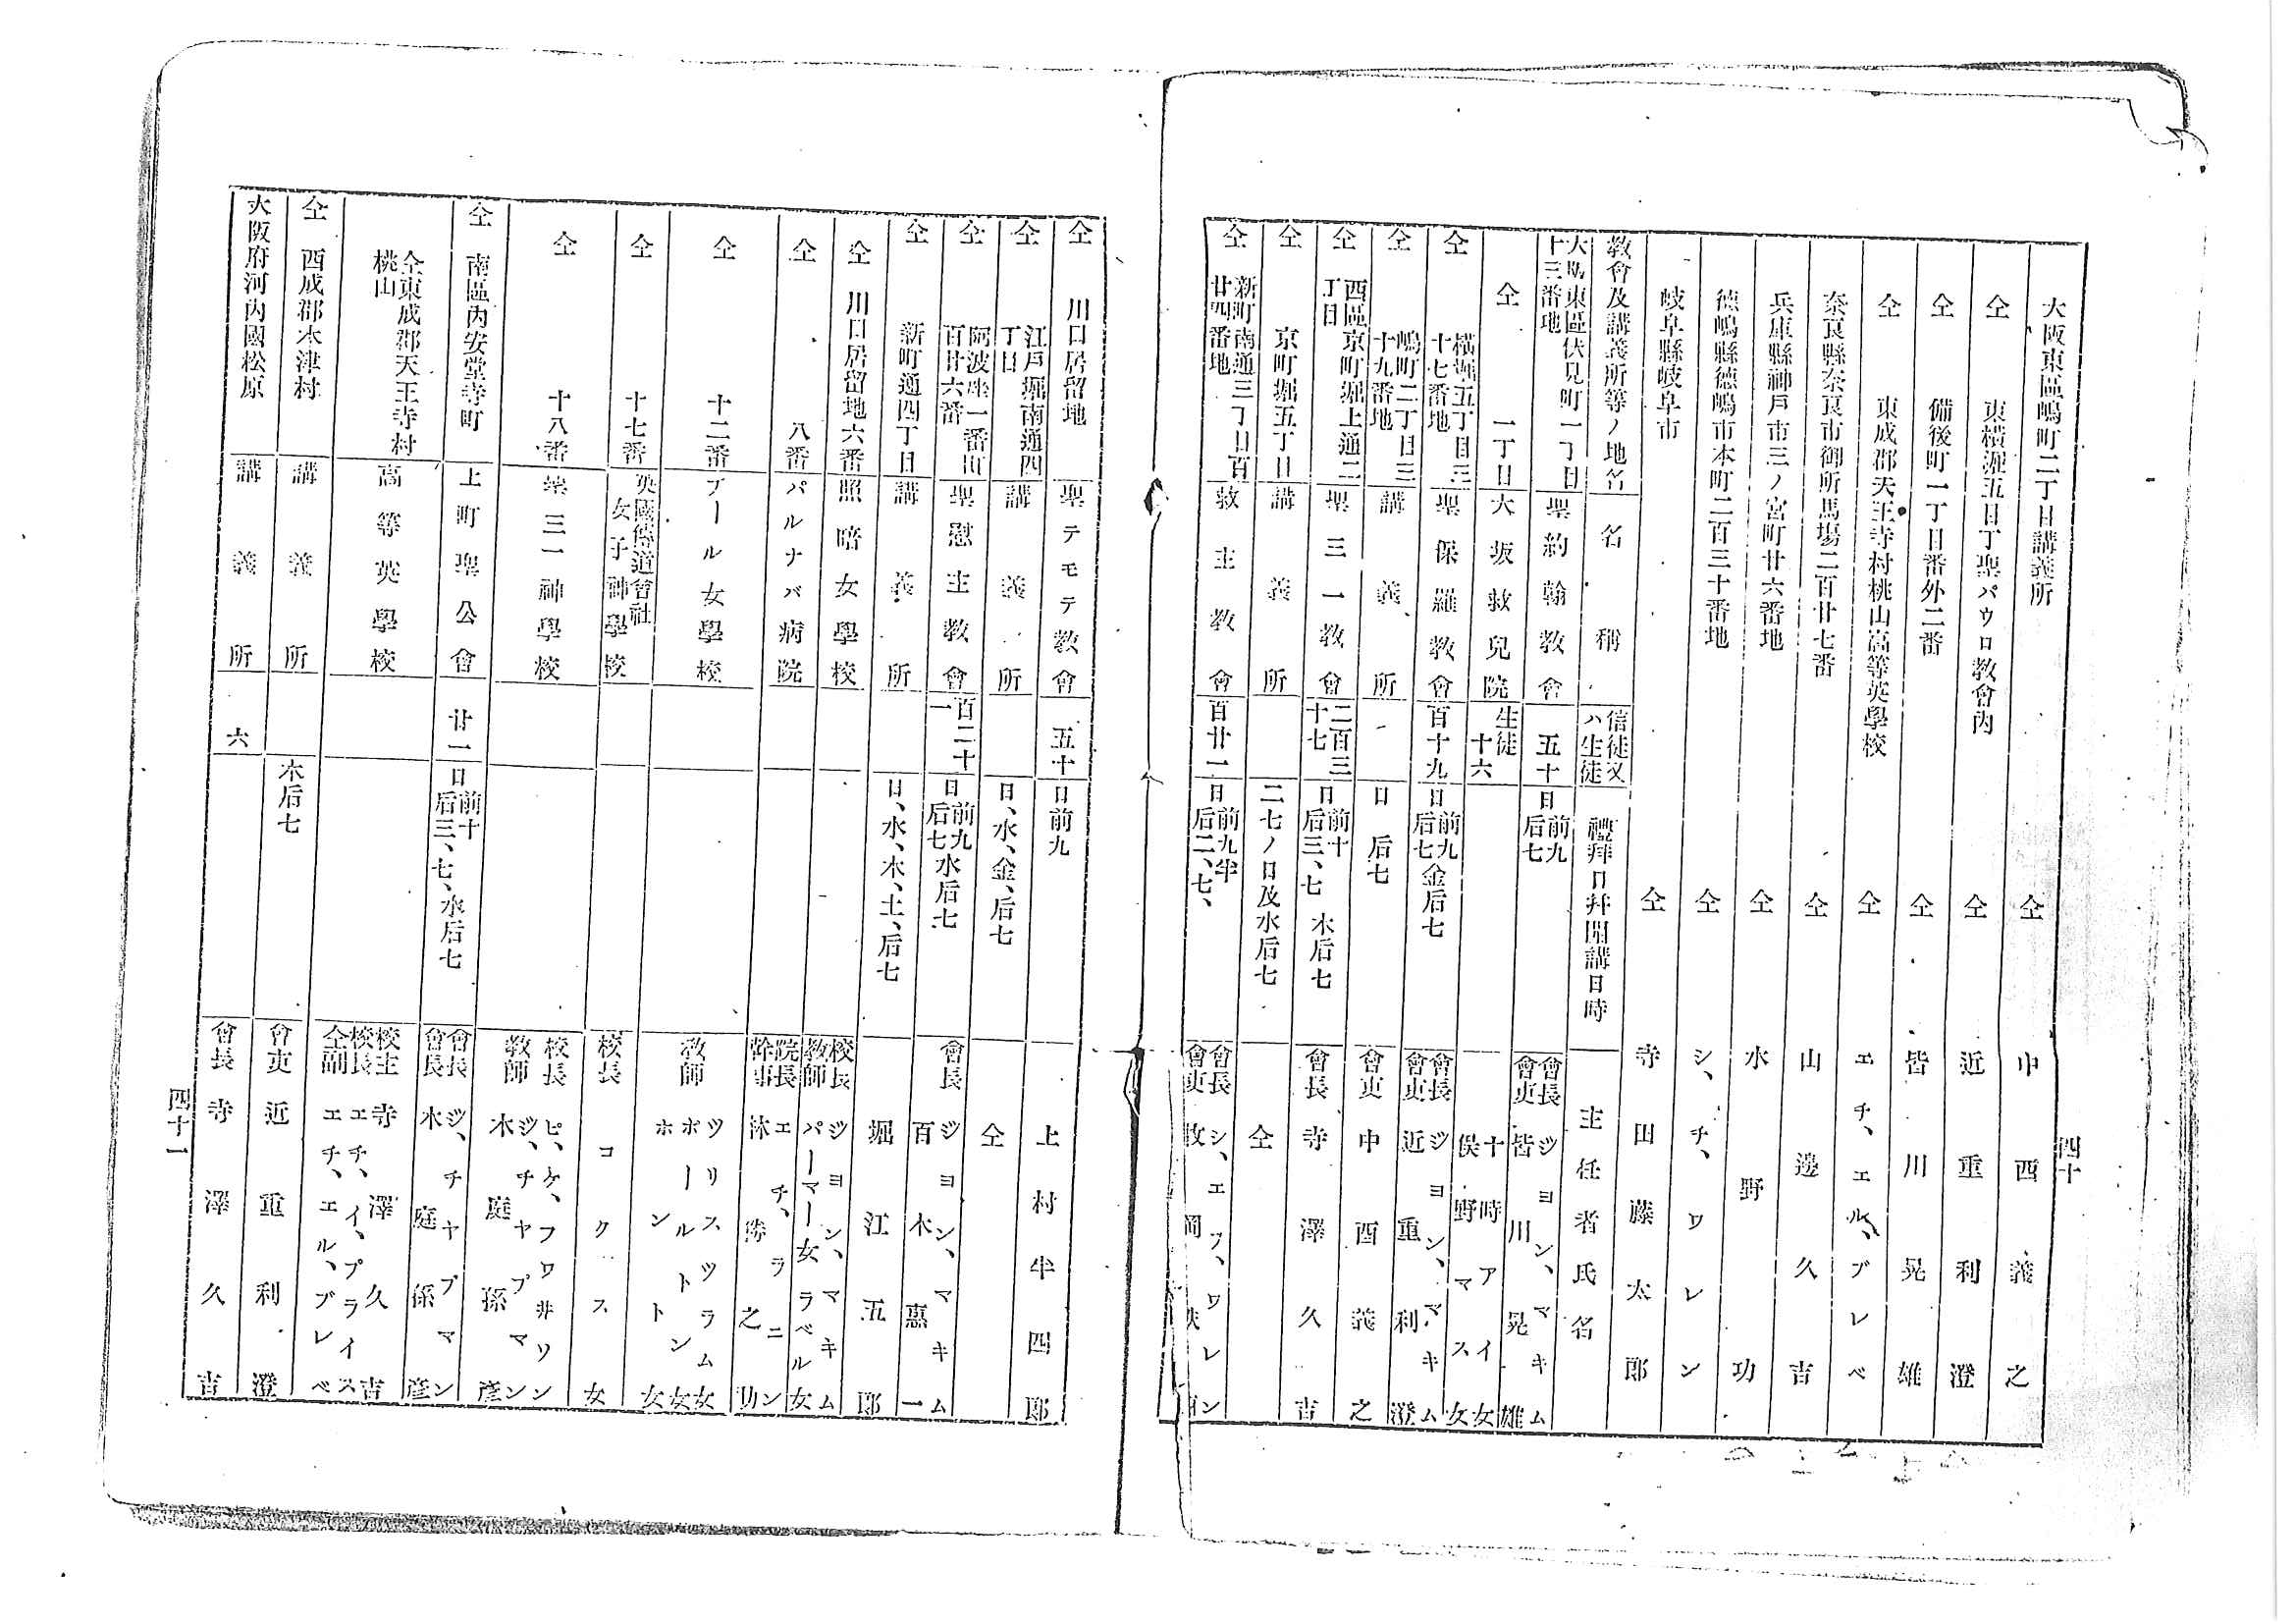 大阪東區嶋町二丁目講義所 仝 中西義之
仝 東橫堀五目丁聖パウロ教會內 仝 近重利澄
仝 備後町一丁目番外二番 仝 皆川晃雄
仝 東成郡天王寺村桃山高等英學校 仝 エチ、エル、ブレベ
奈良縣奈良市御所馬場二百廿七番 仝 山邊久吉
兵庫縣神戶市三ノ宮町廿六番地 仝 水野功
德嶋縣德嶋市本町二百三十番地 仝 シ、チ、ワレン
岐阜縣岐阜市 仝 寺田藤太郎
教會及講義所等ノ地名 名稱 信徒又ハ生徒 禮拜日幷開講日時 主任者氏名
大阪東區伏見町一丁目十三番地 聖約翰教會 五十 日前九后七 會長ジヨン、マキム 會吏皆川晃雄
仝 一丁目 大坂救兒院 生徒十六 十時アイ女 俣野マス女
仝 橫堀五丁目三十七番地 聖保羅教會 百十九 日前九后七金后七 會長ジヨン、マキム 會吏近重利澄
仝 嶋町二丁目三十九番地 講義所 日后七 會吏中西義之
仝 西區京町堀上通二丁目 聖三一教會 二百三十七 日前十后三、七木后七 會長寺澤久吉
仝 京町堀五丁目 講義所 二七ノ日及水后七 仝
仝 新町南通三丁目百廿四番地 救主教會 百廿一 日前九半后二、七、 會長シ、エフ、ワレン 會吏牧岡鉄
四十
仝 川口居留地 聖テモテ教會 五十 日前九 上村半四郎
仝 江戶堀南通四丁目 講義所 日、水、金、后七 仝
仝 阿波座一番町百廿六番 聖慰主教會 百二十一 日前九后七水后七 會長ジヨン、マキム 百木惠一
仝 新町通四丁目 講義所 日、水、木、土、后七 堀江五郎
仝 川口居留地六番 照暗女學校 校長ジヨン、マキム 教師パーマー女ラベル女
仝 八番 パルナバ病院 院長エチ、ラニン 幹事林勝之助
仝 十二番 プール女學校 教師 ツリスツラム女 ボールトン女 ホント女
仝 十七番 英國傳道會社女子神學校 校長コクス女
仝 十八番 聖三一神學校 校長ピ、ケ、フワ井ソン 教師ジ、チヤプマン 木庭孫彥
仝 南區內安堂寺町 上町聖公會 廿一 日前十后三、七、水后七 會長ジ、チヤプマン 會長木庭孫彥
仝東成郡天王寺村桃山 高等英學校 校主寺澤久吉 校長エチ、イ、プライス 仝副エチ、エル、ブレベ
仝 西成郡木津村 講義所 木后七 會吏近重利澄
大阪府河內國松原 講義所 六 會長寺澤久吉
四十一